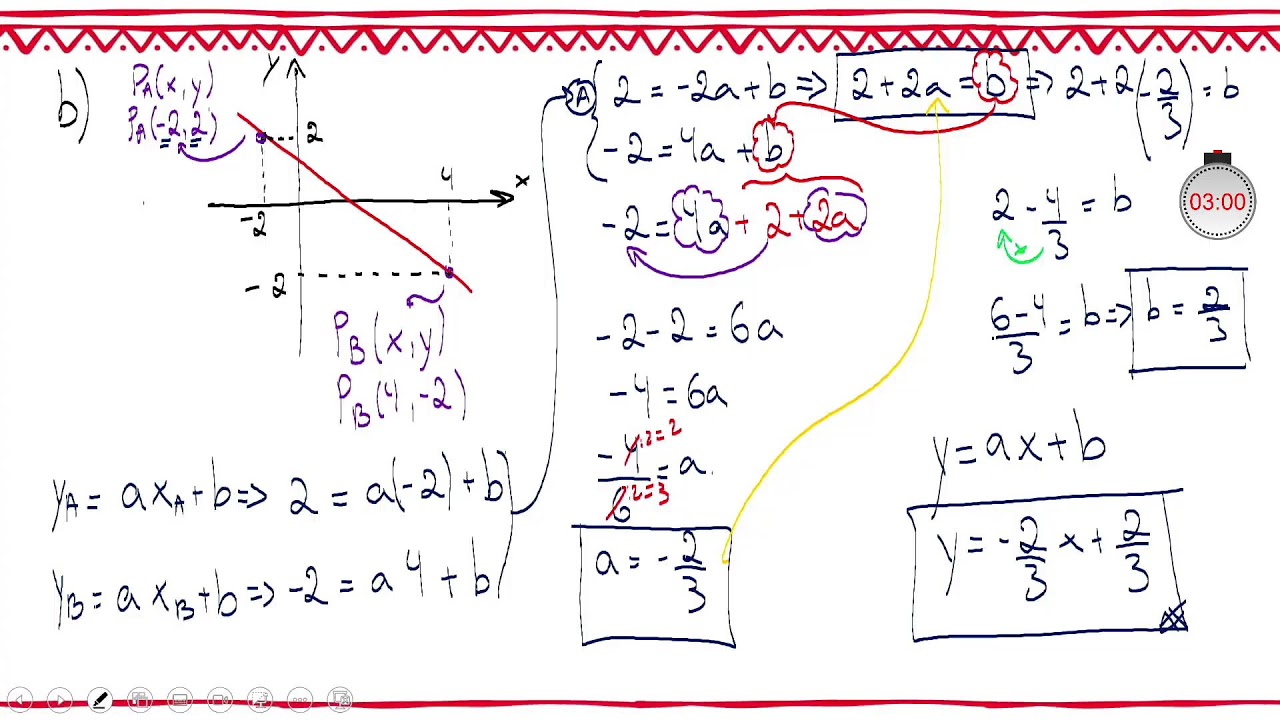 b)
P_A(x, y)
P_A(-2, 2)
y
2
4
x
-2
-2
P_B(x, y)
P_B(4, -2)
y_A = ax_A + b => 2 = a(-2) + b
y_B = ax_B + b => -2 = a4 + b
A 2 = -2a + b => 2 + 2a = b => 2 + 2(-2/3) = b
-2 = 4a + b
-2 = 4a + 2 + 2a
-2 - 2 = 6a
-4 = 6a
-4:2=2/6:2=3 = a
a = -2/3
2 - 4/3 = b
x
(6-4)/3 = b => b = 2/3
y = ax + b
y = -2/3 x + 2/3
03:00